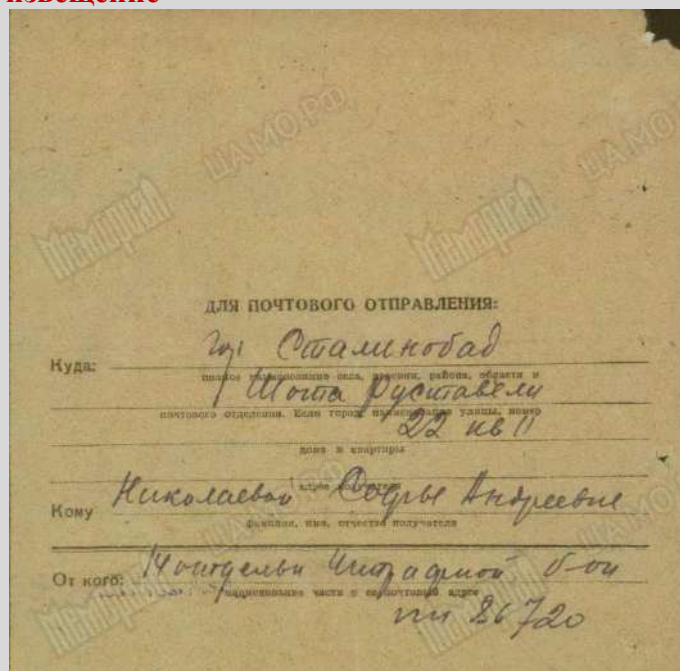 извещение
ЦАМО.РФ
ЦАМО
Мемориал
Мемориал
ДЛЯ ПОЧТОВОГО ОТПРАВЛЕНИЯ:
Куда: гор Сталинобад
полное наименование села, деревни, района, области и
Шота Руставели
почтового отделения. Если город, наименование улицы, номер
22 кв 11
дома и квартиры
адрес получателя
Кому Николаевой Софье Андреевне
фамилия, имя, отчество получателя
От кого: 14 отдельн Штрафной б-он
наименование части и ее почтовый адрес
пп 86720